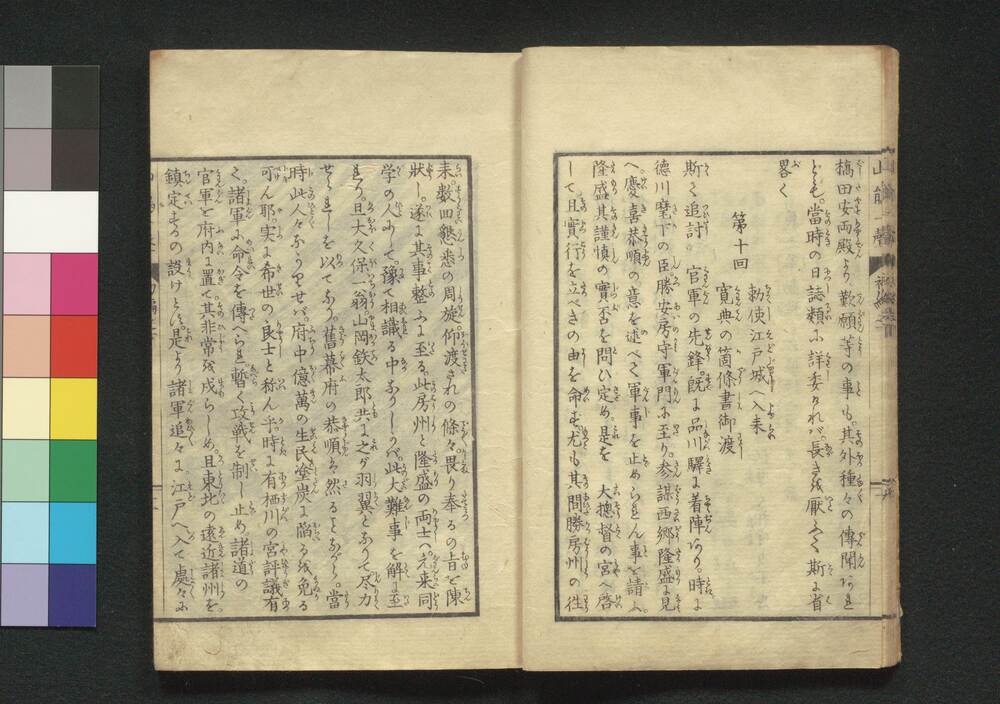 槁田安両殿より歎願等の事も。其外種々の傳聞ハあれ
ども。當時の日誌類に詳委なれバ。長きを厭ふて斯に省
畧く
第十回
勅使江戸城へ入来
寛典の箇條書御渡
斯て追討の官軍の先鋒。既に品川驛に着陣ありし。時に
德川麾下の臣勝安房守軍門に至り。参謀西郷隆盛に見
へ。慶喜恭順の意を述べて軍事を止められん事を請ふ。
隆盛其謹慎の實否を問ひ定め。是を 大摠督の宮へ啓
して。且實行を立べきの由を命む。尤も其間勝房州の徃
来。数回懇悉の周旋。仰渡されの條々。畏り奉るの旨を陳
狀し。遂に其事整ふに至る。此房州と隆盛の両士ハ。元来同
学の人にて。豫て相識る中なりしかバ。此大難事を解に至
る。且大久保一翁。山岡鉄太郎共に之が羽翼となりて尽力
せられしを以てなり。舊幕府の恭順ハ然ることながら。當
時此人々なかりせバ。府中億萬の生民塗炭に陥るを免る
可ん耶。実に希世の良士と称ん乎。時に有栖川の宮評議有
て。諸軍に命令を傳へられ暫く攻戦を制し止め諸道の
官軍を府内に置て。其非常を戍らしめ。且東北の遠近諸州を。
鎮定するの設けとハ。是より諸軍追々に江戸へ入て處々に